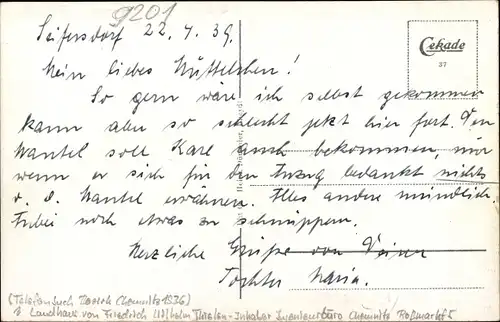 9201
Seifersdorf 22.4.39.
Cekade
37
Mein liebes Muttelchen!
So gern wäre ich selbst gekommen
kann aber so schlecht jetzt hier fort. Den
Mantel soll Karl auch bekommen, nur
wenn er sich für den Anzug bedankt nichts
v. d. Mantel erwähnen. Alles andere mündlich.
Anbei noch etwas zu schnuppern.
Herzliche Grüße von Deiner
Tochter Maria.
(Telefonbuch Bezirk Chemnitz 1936)
Landhaus von Friedrich Wilhelm Inhaber Ingenieurbüro Chemnitz/ Roßmarkt 5